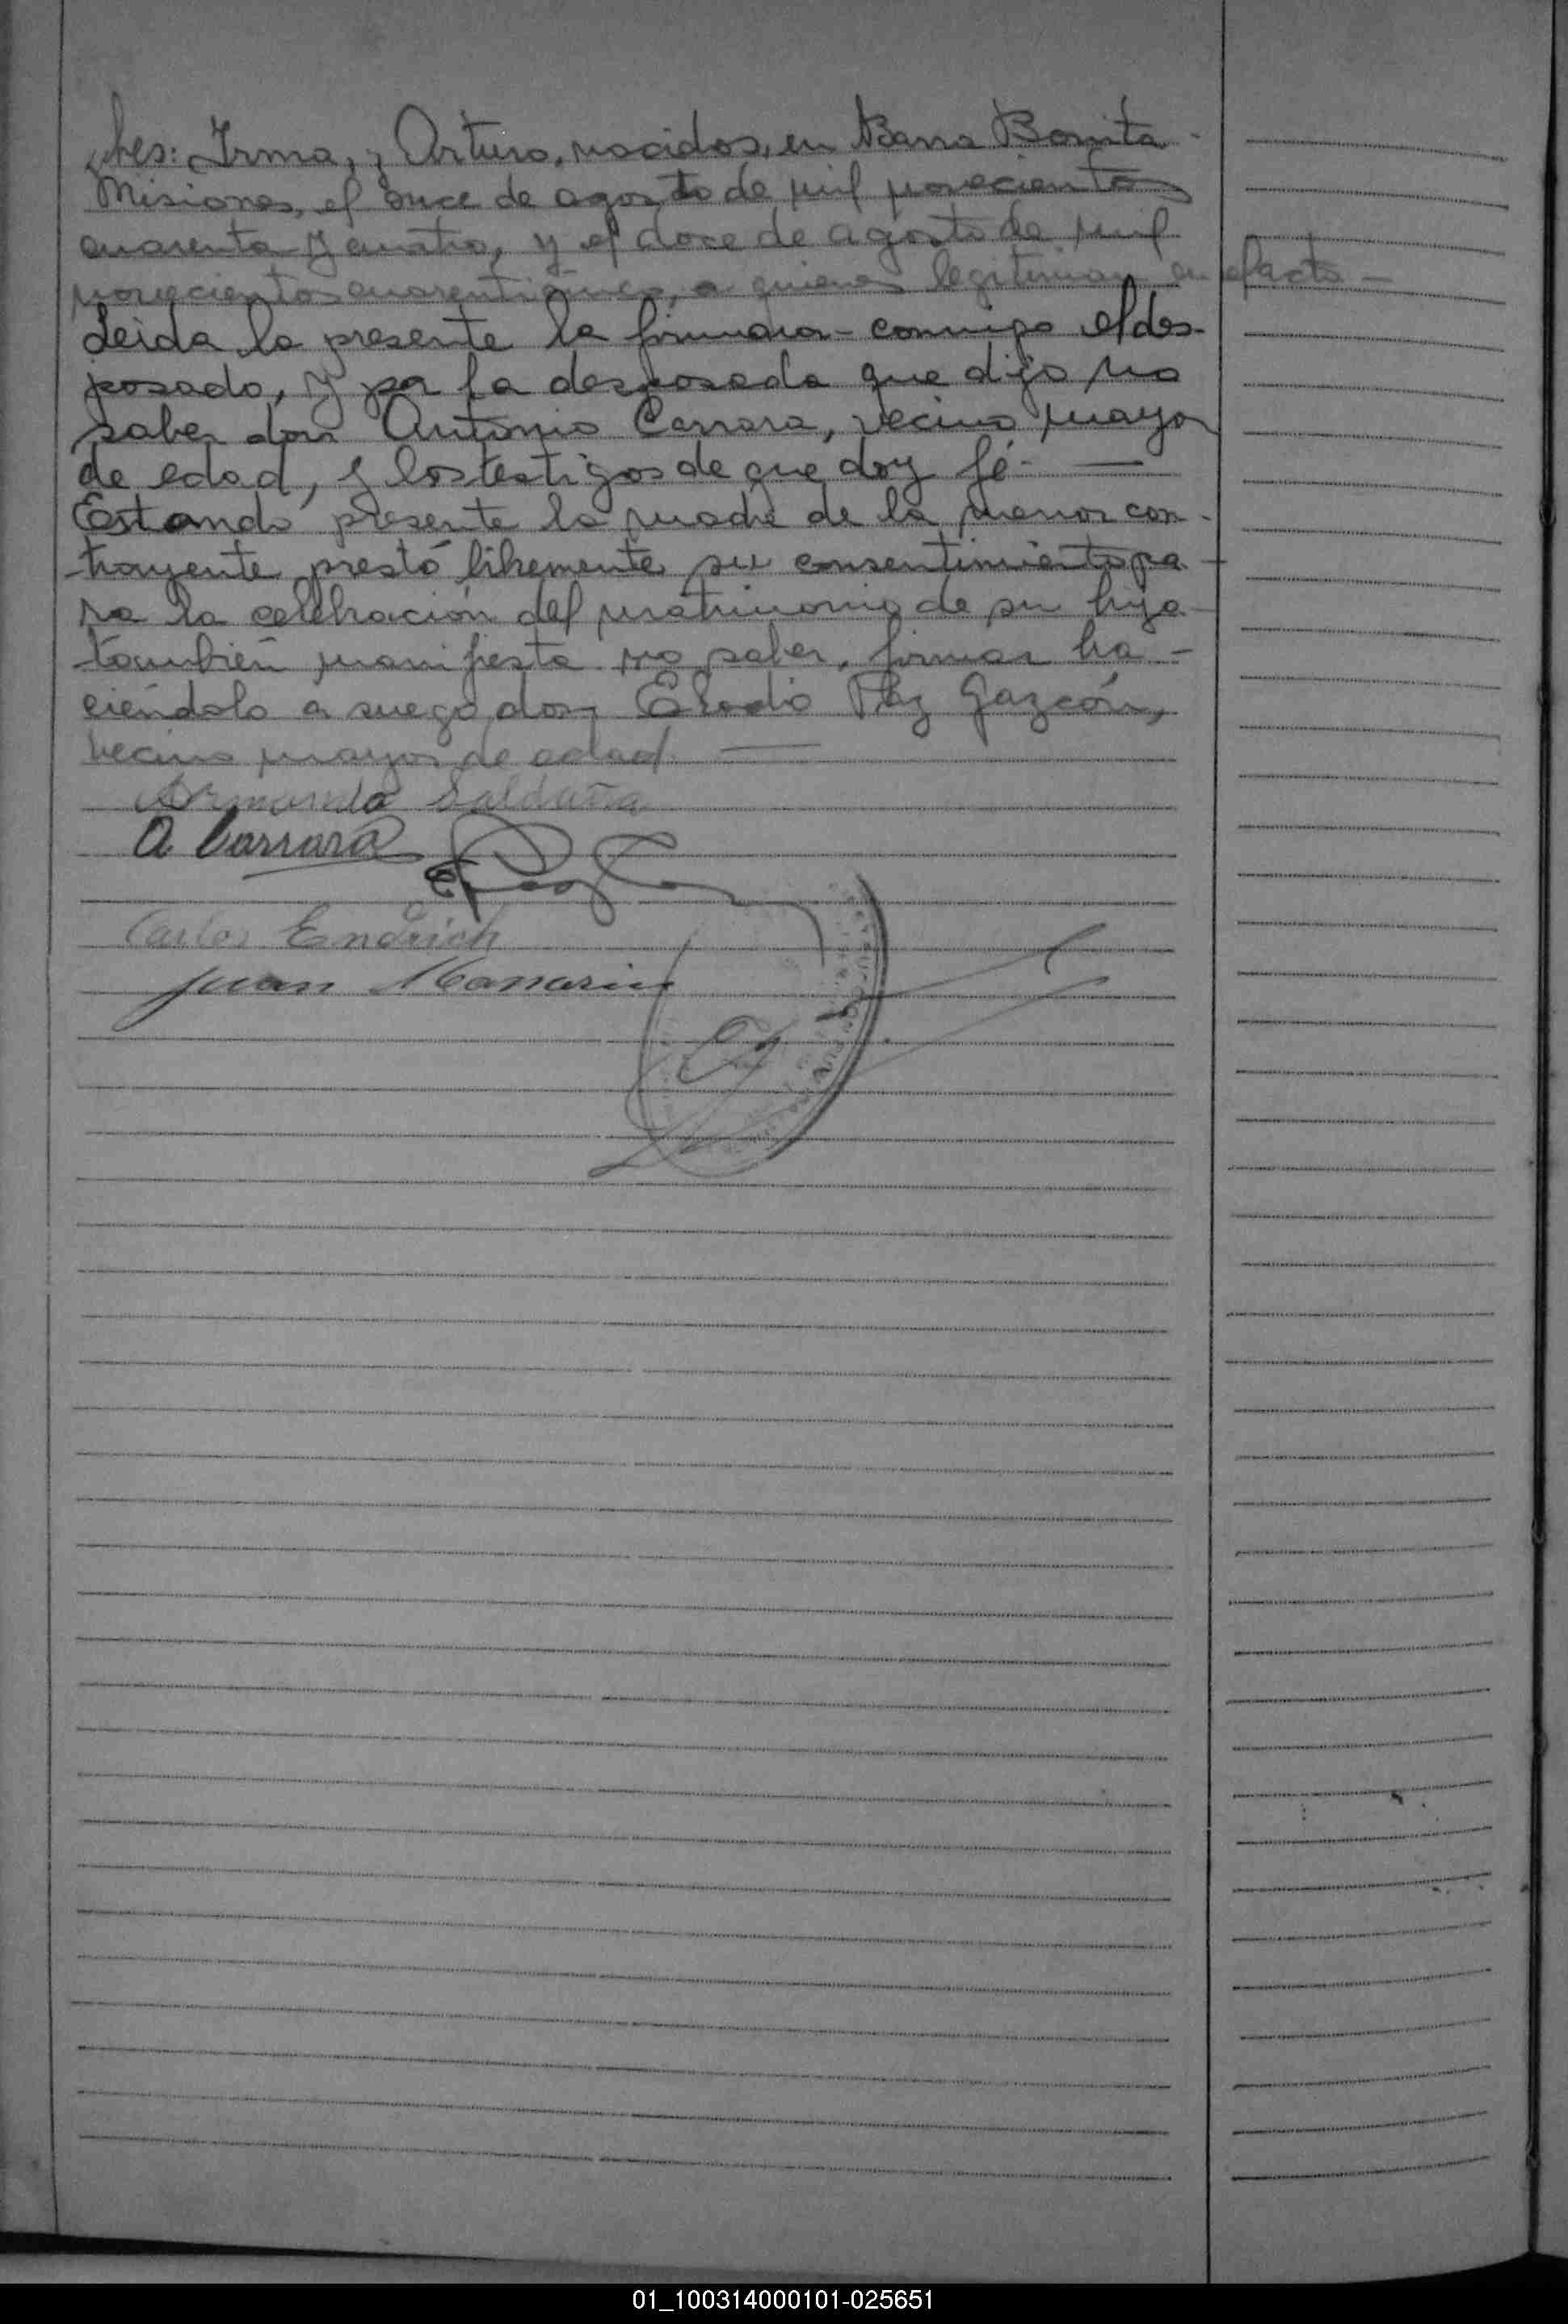 bres: Irma, y Arturo, nacidos, en Barra Bonita -
Misiones, el once de agosto de mil novecientos
cuarenta y cuatro, y el doce de agosto de mil
novecientos cuarenticinco, a quienes legitiman en efacto -
Leida la presente la firmaron conmigo el des-
posado, y por la desposada que dijo no
saber don Antonio Carrara, vecino mayor
de edad, y los testigos de que doy fé. —
Estando presente la madre de la menor con-
trayente prestó libremente su consentimiento pa-
ra la celebración del matrimonio de su hija
también manifiesta no saber, firmar ha-
ciéndolo a ruego don Eladio Paz Gazcón,
vecino mayor de edad. —
Armando Saldaña
A Carrara
Carlos Endrich
Juan
01_100314000101-025651